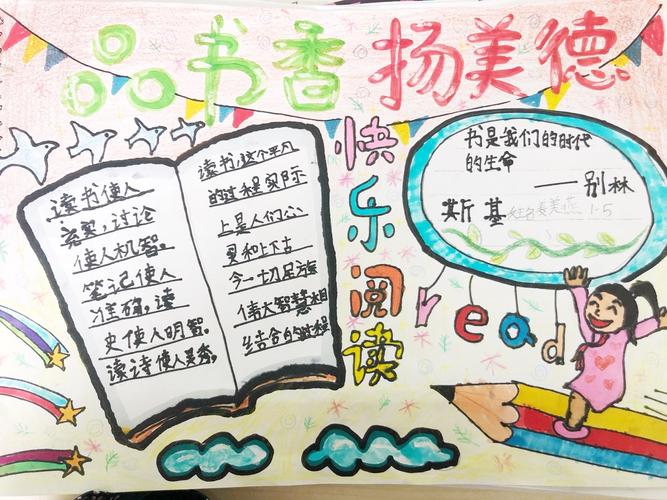 品书香 扬美德
读书使人
充实,讨论
使人机智。
笔记使人
准确,读
史使人明智。
读诗使人灵秀。
读书,这个平凡
的过程实际
上是人们心
灵和上下古
今一切民族
伟大智慧相
结合的过程
快乐阅读
书是我们的时代
的生命
——别林
斯基
1-5
read